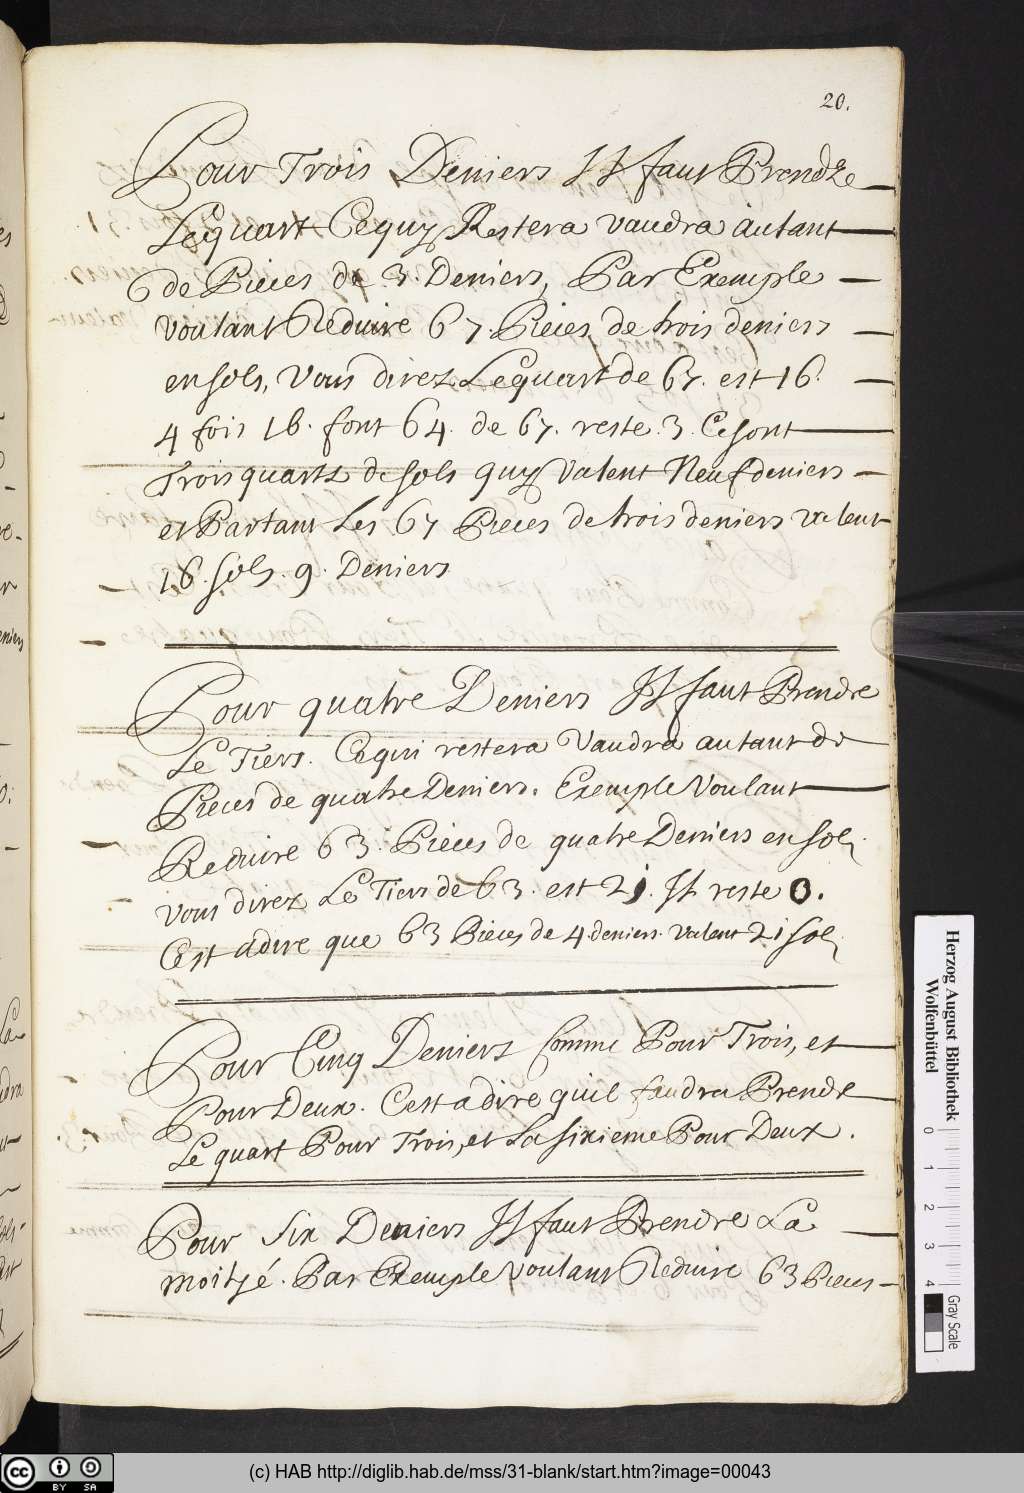 20.
Pour Trois Deniers Il faut Prendre
Le quart Ce quy Restera vaudra autant
de Pieces de 3. Deniers, Par Exemple
voulant Reduire 67. Pieces de trois deniers
en sols, Vous direz Le quart de 67. est 16.
4 fois 16. font 64. de 67. reste 3. Ce sont
Trois quarts de sols quy valent Neuf deniers
et Partant Les 67 Pieces de trois deniers valent
16. sols. 9. Deniers
Pour quatre Deniers Il faut Prendre
Le Tiers. Ce qui restera Vaudra autant de
Pieces de quatre Deniers. Exemple Voulant
Reduire 63. Pieces de quatre Deniers en sols
vous direz Le Tiers de 63. est 21. Il reste 0.
C'est adire que 63 Pieces de 4. deniers. valent 21 sols
Pour Cinq Deniers Comme Pour Trois, et
Pour Deux. C'est a dire qu'il faudra Prendre
Le quart Pour Trois, et La sixieme Pour Deux.
Pour Six Deniers Il faut Prendre La
moityé. Par Exemple voulant Reduire 63 Pieces
Herzog August Bibliothek
Wolfenbüttel
0 1 2 3 4 Gray Scale
cc BY SA
(c) HAB http://diglib.hab.de/mss/31-blank/start.htm?image=00043